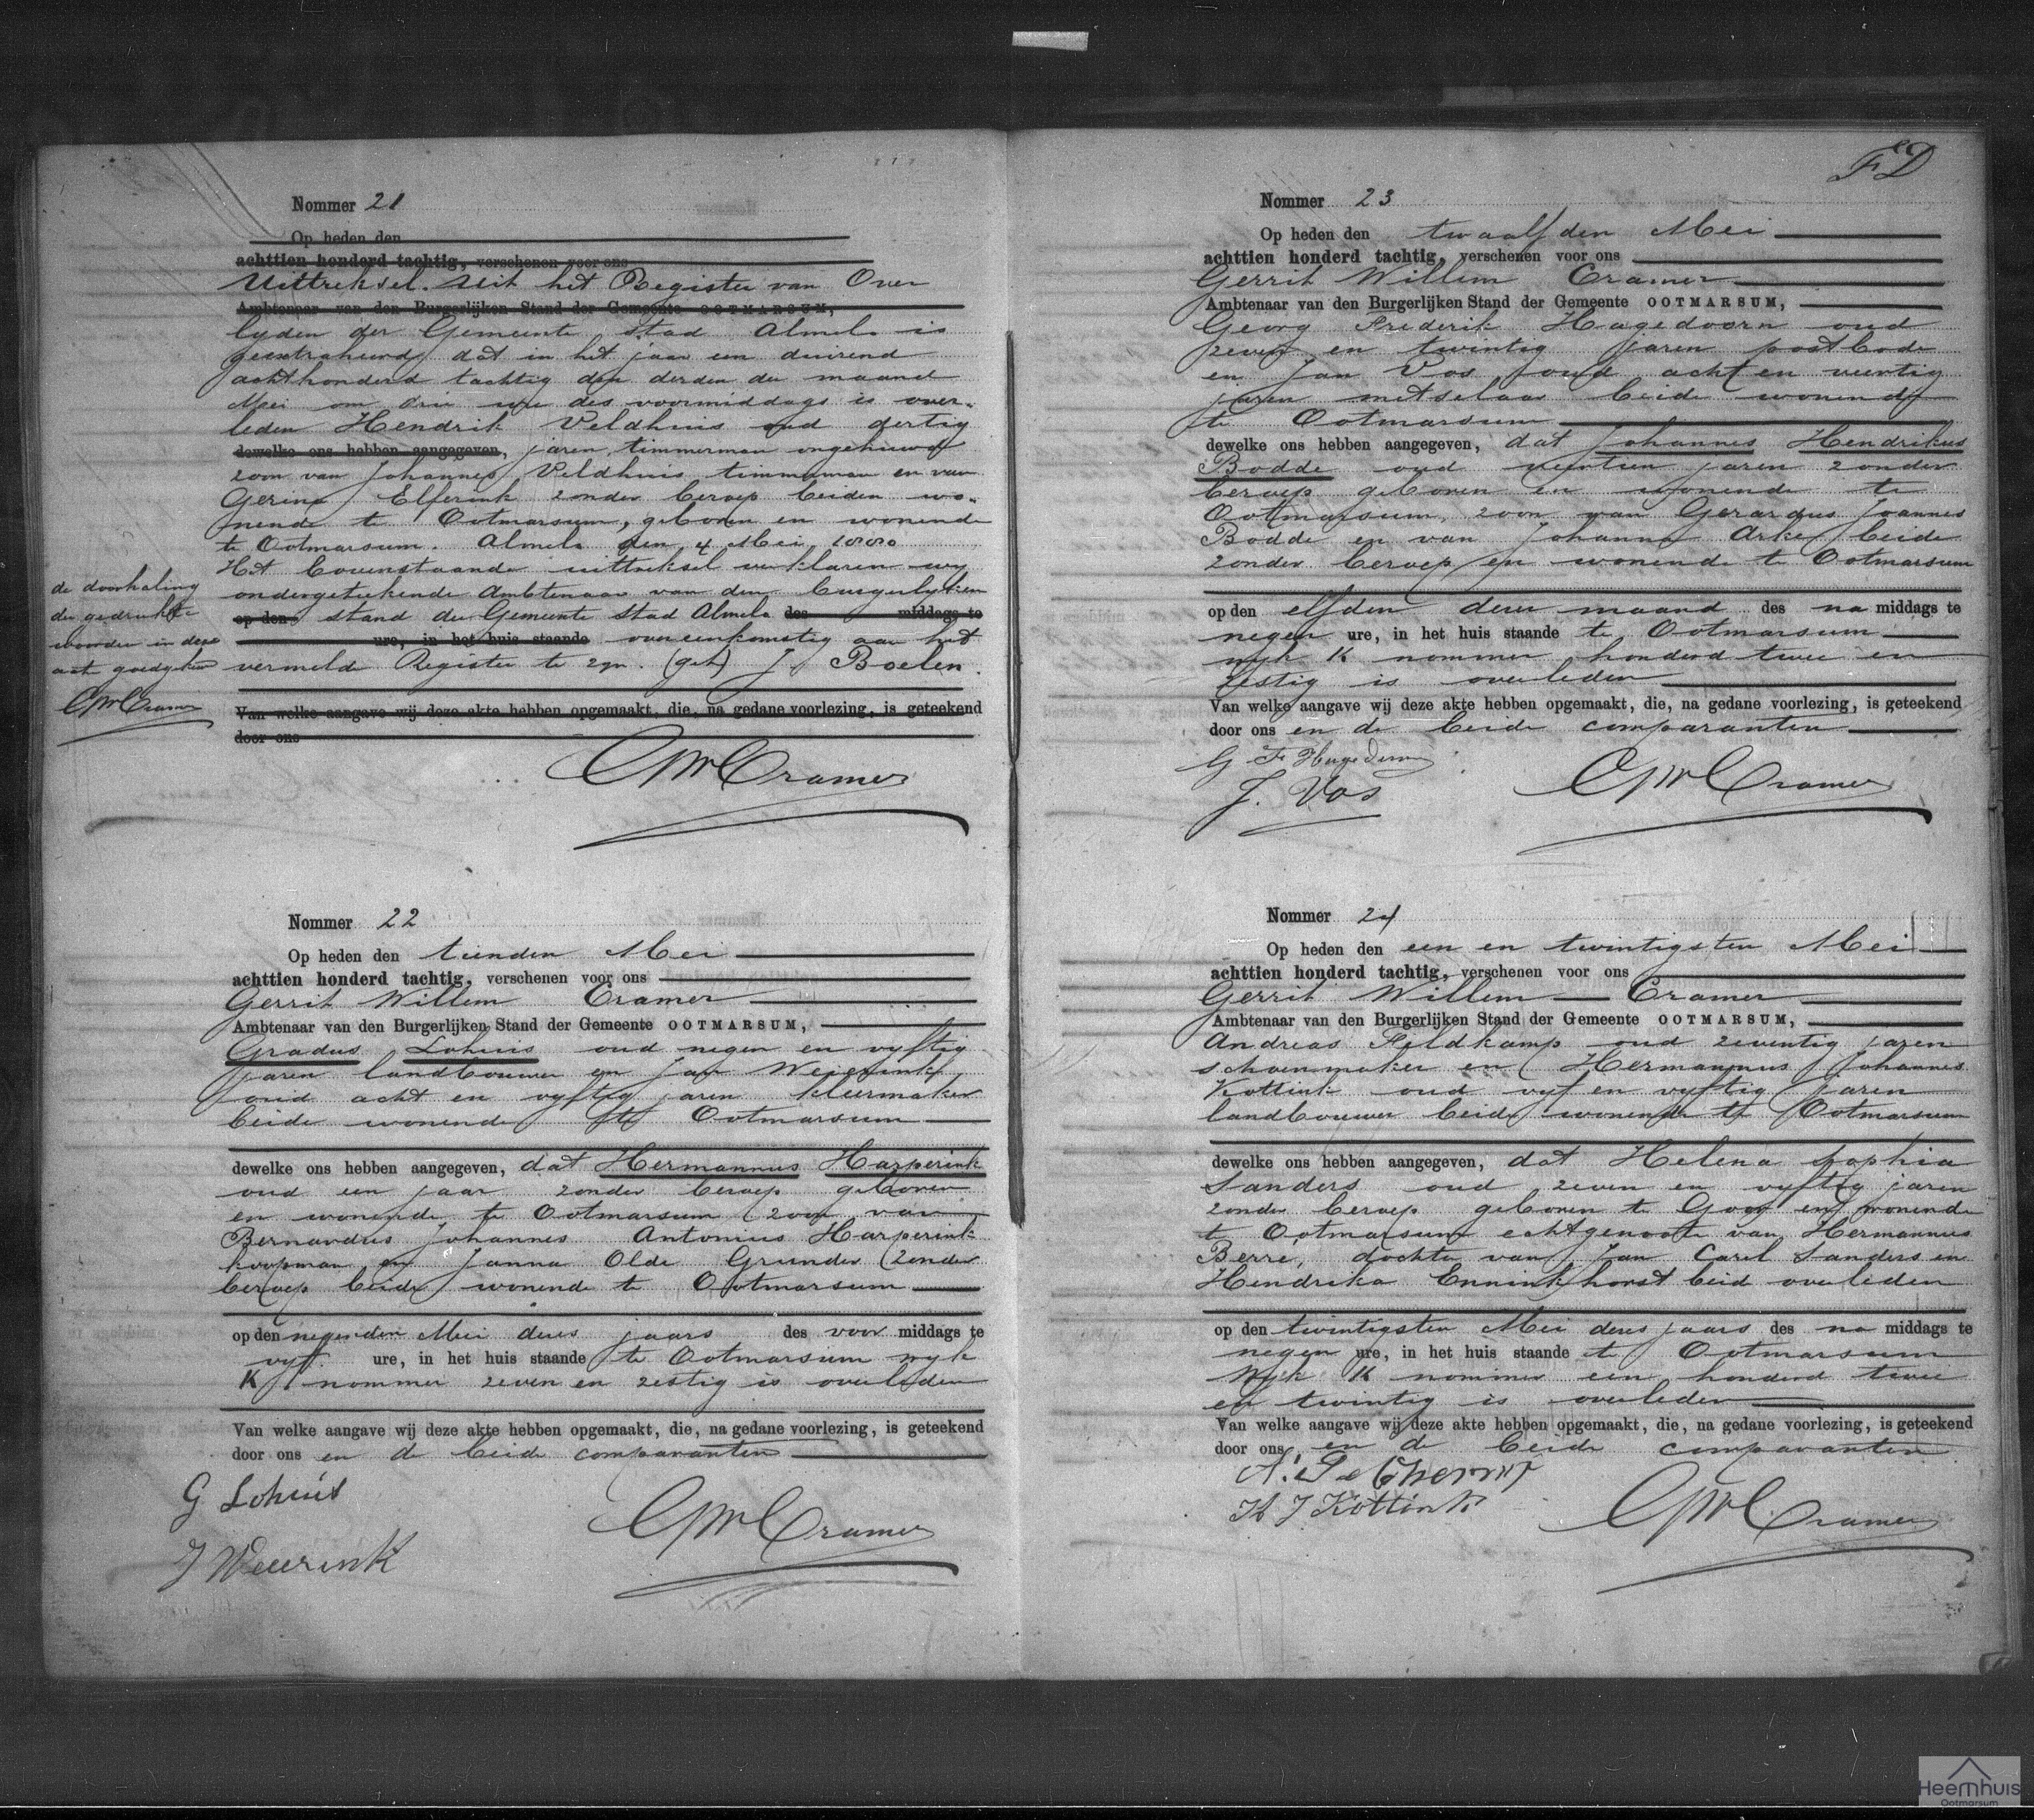 Nommer 21
Op heden den
achttien honderd tachtig, verschenen voor ons
Uittreksel. Uit het Register van Over
Ambtenaar van den Burgerlijken Stand der Gemeente OOTMARSUM,
lyden der Gemeente Stad Almelo is
geextraheerd dat in het jaar een duizend
achthonderd tachtig den derden der maand
Mei om drie ure des voormiddags is over-
leden Hendrik Veldhuis oud dertig
dewelke ons hebben aangegeven, jaren timmerman ongehuwd
zoon van Johannes Veldhuis timmerman en van
Gerina Elferink zonder beroep beiden wo-
nende te Ootmarsum, geboren en wonende
te Ootmarsum. Almelo den 4 Mei 1880
Het bovenstaande uittreksel verklaren wy
ondergeteekende Ambtenaar van den burgerlyken
op den stand der Gemeente Stad Almelo des middags te
ure, in het huis staande overeenkomstig aan het
vermelde Register te zyn. (get) J Boelen.
Van welke aangave wij deze akte hebben opgemaakt, die, na gedane voorlezing, is geteekend
door ons
de doorhaling
der gedrukte
woorden in deze
act goedgekeurd
GWCramer
GWCramer
Nommer 22
Op heden den tienden Mei
achttien honderd tachtig, verschenen voor ons
Gerrit Willem Cramer
Ambtenaar van den Burgerlijken Stand der Gemeente OOTMARSUM,
Gradus Lohuis oud negen en vyftig
jaren landbouwer en Jan Weierink
oud acht en vyftig jaren kleermaker
beide wonende te Ootmarsum
dewelke ons hebben aangegeven, dat Hermannus Harperink
oud een jaar zonder beroep geboren
en wonende te Ootmarsum zoon van
Bernardus Johannes Antonius Harperink
koopman en Janna Olde Grunder zonder
beroep beide wonende te Ootmarsum
op den negenden Mei dezes jaars des voor middags te
vyf ure, in het huis staande te Ootmarsum wyk
K nommer zeven en zestig is overleden
Van welke aangave wij deze akte hebben opgemaakt, die, na gedane voorlezing, is geteekend
door ons en de beide comparanten
G Lohuis
J Weierink
GWCramer
FD
Nommer 23
Op heden den twaalfden Mei
achttien honderd tachtig, verschenen voor ons
Gerrit Willem Cramer
Ambtenaar van den Burgerlijken Stand der Gemeente OOTMARSUM,
Georg Frederik Hagedoorn oud
zeven en twintig jaren postbode
en Jan Vos oud acht en veertig
jaren metselaar beide wonende
te Ootmarsum
dewelke ons hebben aangegeven, dat Johannes Hendrikus
Bodde oud veertien jaren zonder
beroep geboren en wonende te
Ootmarsum, zoon van Gerardus Joannes
Bodde en van Johanna Arke beide
zonder beroep en wonende te Ootmarsum
op den elfden dezer maand des na middags te
negen ure, in het huis staande te Ootmarsum
wyk K nommer honderd twee en
zestig is overleden
Van welke aangave wij deze akte hebben opgemaakt, die, na gedane voorlezing, is geteekend
door ons en de beide comparanten
G F Hagedoorn
J. Vos
GWCramer
Nommer 24
Op heden den een en twintigsten Mei
achttien honderd tachtig, verschenen voor ons
Gerrit Willem Cramer
Ambtenaar van den Burgerlijken Stand der Gemeente OOTMARSUM,
Andreas Feldkamp oud zeventig jaren
schoenmaker en Hermannus Johannes
Kottink oud vyf en vyftig jaren
landbouwer beide wonende te Ootmarsum
dewelke ons hebben aangegeven, dat Helena Sophia
Sanders oud zeven en vyftig jaren
zonder beroep geboren te Goor en wonende
te Ootmarsum echtgenoote van Hermannus
Berre, dochter van Jan Carel Sanders en
Hendrika Enninkhorst beid overleden
op den twintigsten Mei dezes jaars des na middags te
negen ure, in het huis staande te Ootmarsum
Wyk K nommer een honderd twee
en twintig is overleden
Van welke aangave wij deze akte hebben opgemaakt, die, na gedane voorlezing, is geteekend
door ons en de beide comparanten
H J Kottink
GWCramer
Heemhuis
Ootmarsum